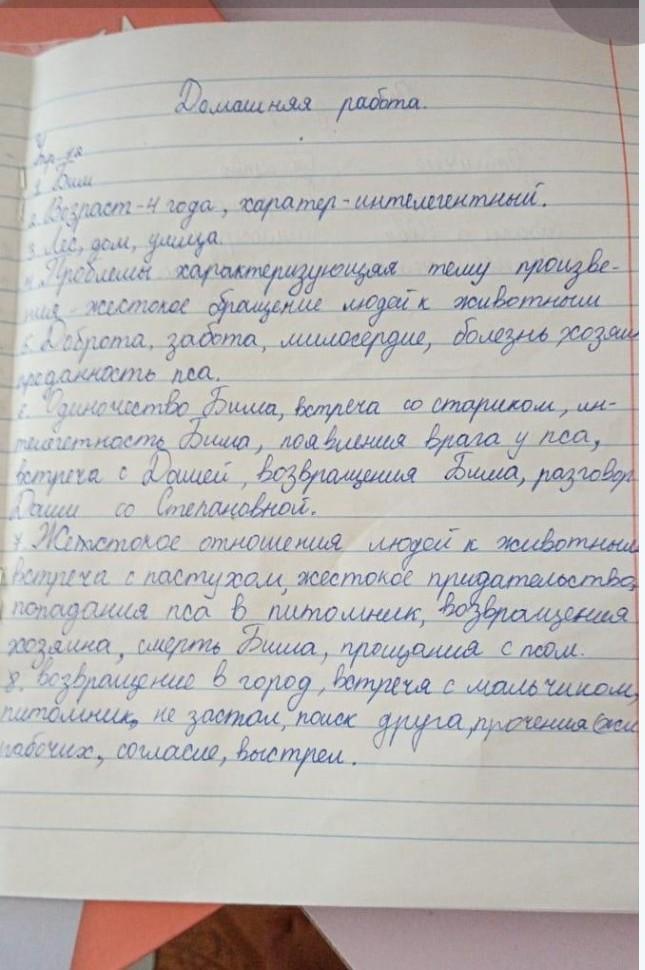 Домашняя работа.
Упр-ия
1. Бим
2. Возраст-4 года, харатер-интелегентный.
3. Лес, дом, улица
4. Проблемы характеризующая тему произве-
ния - жестокое бращение людей к животным
5. Доброта, забота, милосердие, болезнь хозяин
преданность пса.
6. Одиночество Бима, встреча со стариком, ин-
телегетность Бима, появления врага у пса,
встреча с Дашей, возвращения Бима, разговор
Даши со Степановной.
7. Жетстокое отношения людей к животным
встреча с пастухом, жестокое придательство,
попадания пса в питомник, возвращения
хозяина, смерть Бима, прощания с псом.
8. возвращение в город, встреча с мальчиком,
питомник, не застал, поиск друга, прочения
рабочих, согласие, выстрел.